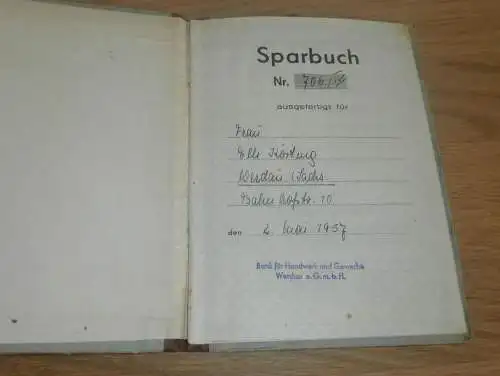 Sparbuch
Nr.
ausgefertigt für
Frau
Elle Körtung
Werdau (Sachs
Bahnhofstr. 10
den 2. Mai 1957
Bank für Handwerk und Gewerbe
Werdau e.G.m.b.H.